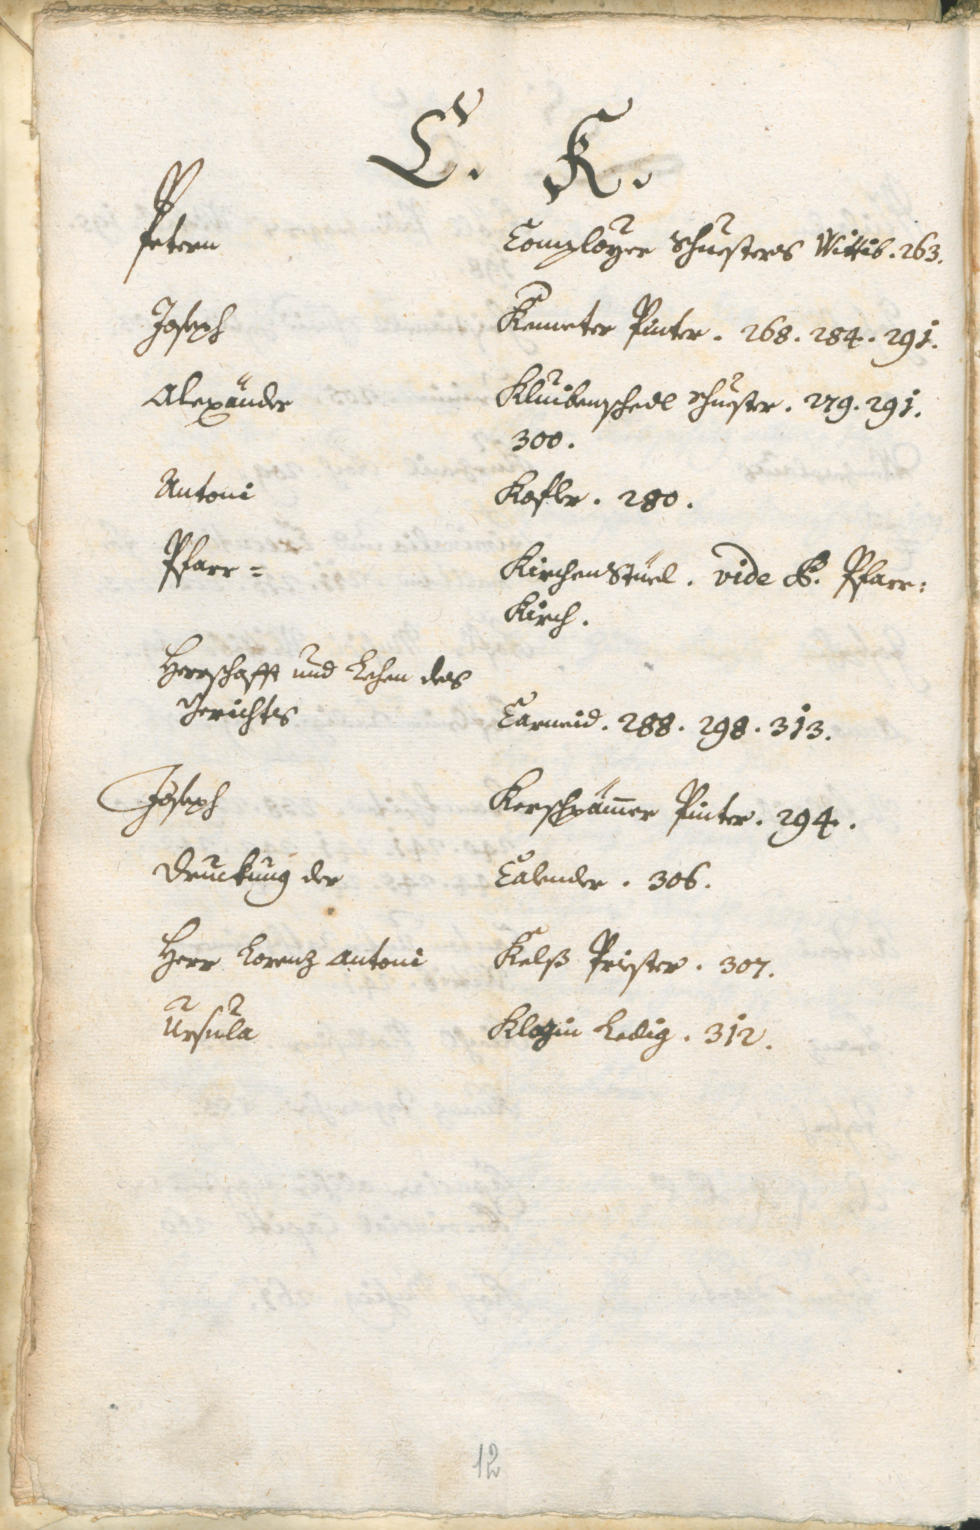 C. K.
Petern Comployer Schuesters Wittib. 263.
Joseph Kemeter Pinter. 268. 284. 291.
Alexander Kluibenschedl Schuester. 279. 291.
300.
Antoni Kofler. 280.
Pfarr= Kirchenstüel. vide P. Pfarr:
Kirch.
Herrschafft und Lehen des
Gerichts Carneid. 288. 298. 313.
Joseph Kerschpämer Pinter. 294.
Druckung der Calender. 306.
Herr Lorenz Antoni Kelß Priester. 307.
Ursula Klozin Ledig. 312.
12